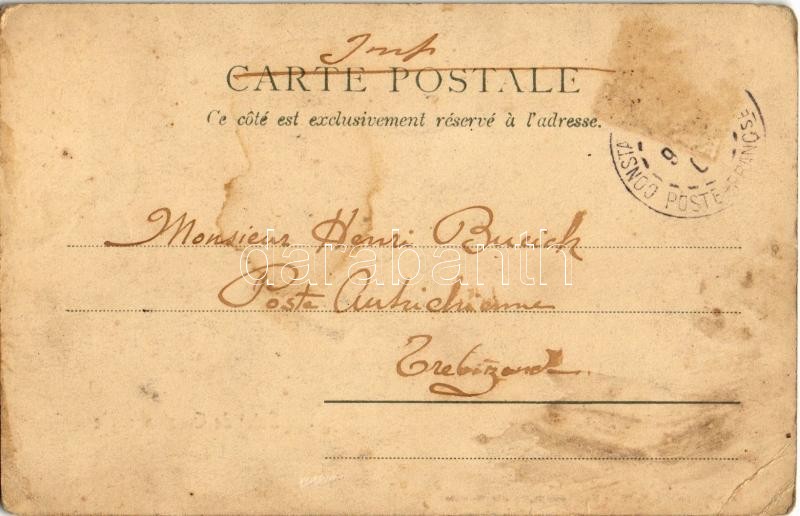 Imp
CARTE POSTALE
Ce côté est exclusivement réservé à l'adresse.
CONSTA
POSTE FRANÇSE
Monsieur Henri Burich
Poste Autrichienne
Trebizonde
darabanth